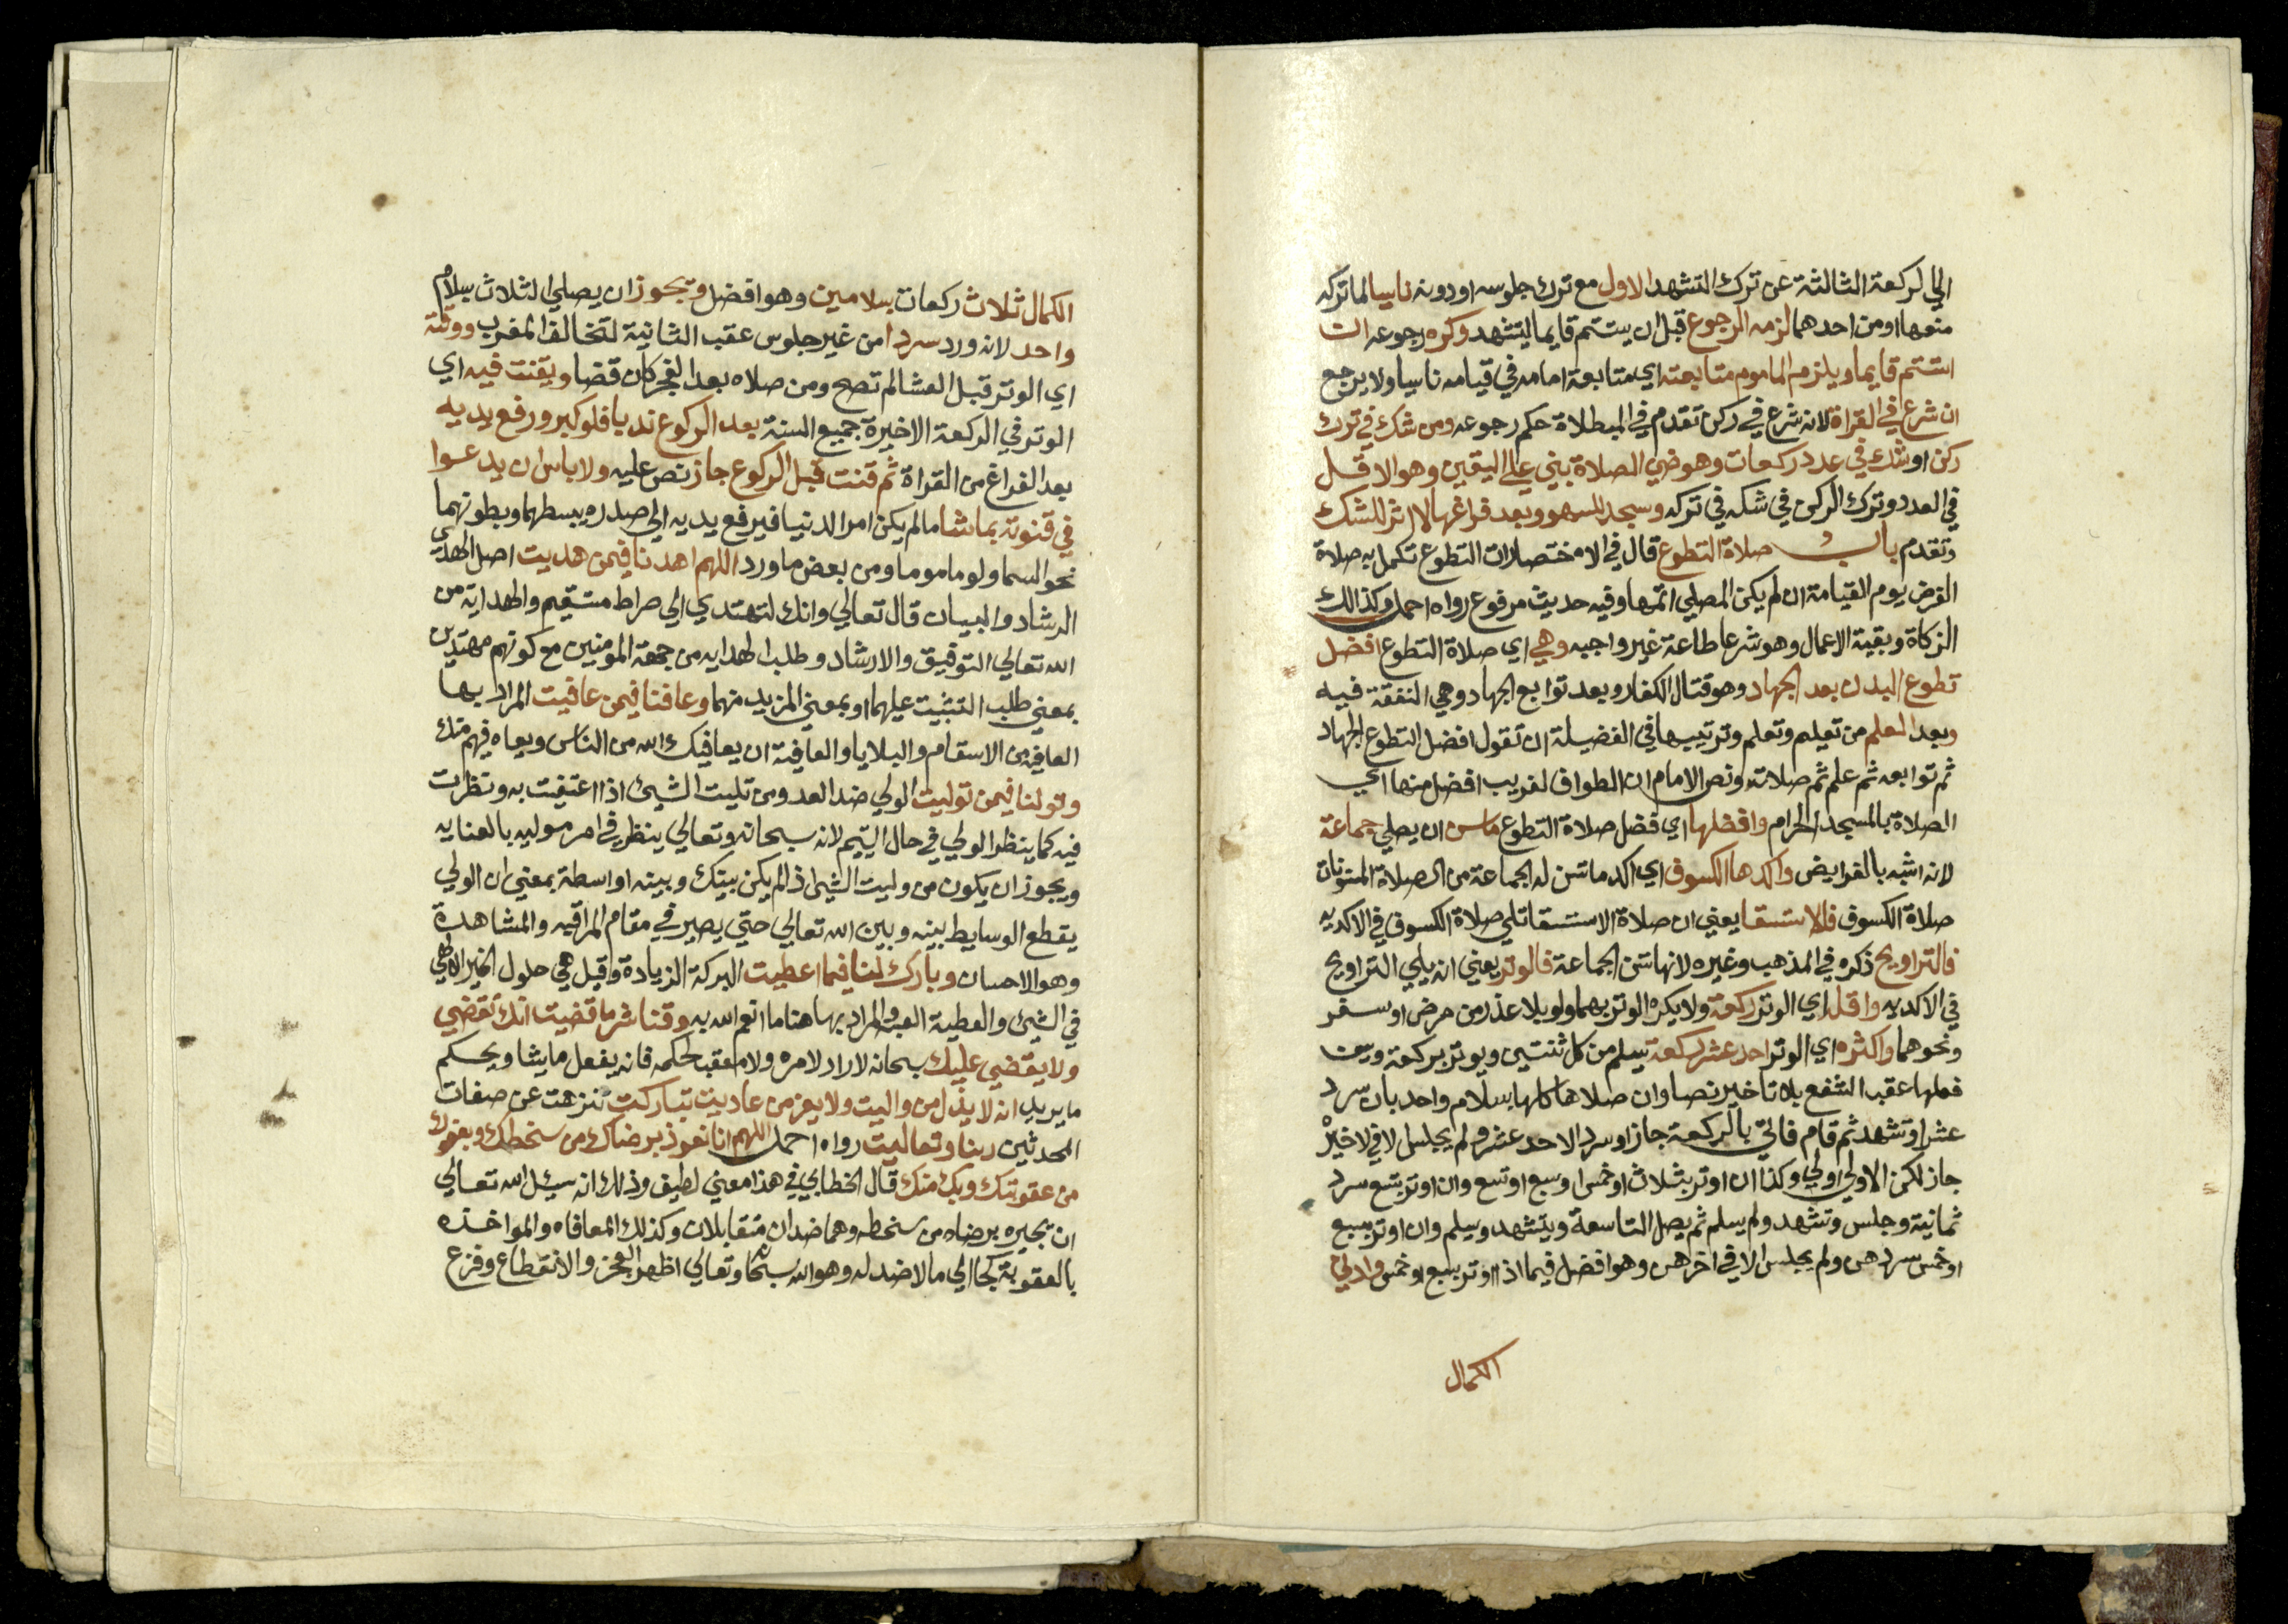 الي الركعة الثالثة عن ترك التشهد الاول مع ترك جلوسه او دونه ناسيا لما تركه
منهما او من احدهما لزمه الرجوع قبل ان يستتم قايما ليتشهد وكره رجوعه ان
استتم قايما ويلزم الماموم متابعته اي متابعة امامه في قيامه ناسيا ولا يرجع
ان شرع في القراة لانه شرع في ركن تقدم في المبطلاة حكم رجوعه ومن شك في ترك
ركن او شك في عدد ركعات وهو في الصلاة بني علي اليقين وهو الاقل
في العدد وترك الركن في شكه في تركه وسجد للسهو وبعد فراغها لا اثر للشك
وتقدم باب صلاة التطوع قال في الاختصارات التطوع تكمل به صلاة
الفرض يوم القيامة ان لم يكن المصلي اتمها وفيه حديث مرفوع رواه احمد وكذالك
الزكاة وبقية الاعمال وهو شرعا طاعة غير واجبه وهي اي صلاة التطوع افضل
تطوع البدن بعد الجهاد وهو قتال الكفار وبعد توابع الجهاد وهي النفقة فيه
وبعد العلم من تعليم وتعلم وترتيبها في الفضيلة ان تقول افضل التطوع الجهاد
ثم توابعه ثم علم ثم صلاته ونص الامام ان الطواف لغريب افضل منها اي
الصلاة بالمسجد الحرام وافضلها اي فضل صلاة التطوع ماسن ان يصلي جماعة
لانه اشبه بالفرايض واكدها الكسوف اي اكد ما تسن له الجماعة من الصلاة المسنونات
صلاة الكسوف فالاستسقا يعني ان صلاة الاستسقا تلي صلاة الكسوف في الاكديه
فالتراويح ذكره في المذهب وغيره لانها تسن الجماعة فالوتر يعني انه يلي التراويح
في الاكديه واقله اي الوتر ركعة ولا يكره الوتر بهما ولو بلا عذر من مرض او سفر
ونحوهما واكثره اي الوتر احد عشر ركعة يسلم من كل ثنتين ويوتر بركعة ويسن
فعلها عقب الشفع بلا تاخير نصا وان صلاها كلها بسلام واحد بان سرد
عشرا وتشهد ثم قام فاتي بالركعة جاز او سرد الاحد عشر ولم يجلس الا في الاخيرة
جاز لكن الاولي اولي وكذا ان اوتر بثلاث او خمس او سبع او تسع وان اوتر بتسع سرد
ثمانية وجلس وتشهد ولم يسلم ثم يصل التاسعة ويتشهد ويسلم وان اوتر بسبع
او خمس سردهن ولم يجلس الا في اخرهن وهو افضل فيما اذا اوتر بسبع او خمس وادني
الكمال
الكمال ثلاث ركعات بسلامين وهو افضل ويجوز ان يصلي الثلاث بسلام
واحد لانه ورد سردا من غير جلوس عقب الثانية لتخالف المغرب ووقته
اي الوتر قبل العشا لم تصح ومن صلاه بعد الفجر كان قضا ويقنت فيه اي
الوتر في الركعة الاخيرة جميع السنة بعد الركوع ندبا فلو كبر ورفع يديه
بعد الفراغ من القراة ثم قنت قبل الركوع جاز نص عليه ولا باس ان يدعوا
في قنوته بما شا ما لم يكن امر الدنيا فيرفع يديه الي صدره يبسطهما وبطونهما
نحو السما ولو ماموما ومن بعض ما ورد اللهم اهدنا فيمن هديت اصل الهدي
الرشاد والبيان قال تعالي وانك لتهتدي الي صراط مستقيم والهداية من
الله تعالي التوفيق والارشاد وطلب الهدايه من جهة المومنين مع كونهم مهتدين
بمعني طلب التثبيت عليها او بمعني المزيد منها وعافنا فيمن عافيت المراد بها
العافيه من الاسقام والبلايا والعافية ان يعافيك الله من الناس ويعاه فيهم منك
وتولنا فيمن توليت الولي ضد العدو من تليت الشيئ اذا اعتنيت به ونظرت
فيه كما ينظر الولي في حال اليتيم لانه سبحانه وتعالي ينظر في امر موليه بالعنايه
ويجوز ان يكون من وليت الشيئ اذ الم يكن بينك وبينه اواسطة بمعني ان الولي
يقطع الوسايط بينه وبين الله تعالي حتي يصير في مقام المراقبه والمشاهدة
وهو الاحسان وبارك لنا فيما اعطيت البركة الزيادة وقيل هي حلول الخير الالهي
في الشيئ والعطية الهبه والمراد بها هنا ما انعم الله به وقنا شر ما قضيت انك تقضي
ولا يقضي عليك سبحانه لا راد لامره ولا معقب لحكمه فانه يفعل ما يشا ويحكم
ما يريد انه لا يذل من واليت ولا يعز من عاديت تباركت تنزهت عن صفات
المحدثين ربنا وتعاليت رواه احمد اللهم انا نعوذ برضاك من سخطك وبعفوك
من عقوبتك وبك منك قال الخطابي في هذا معني لطيف وذلك انه سئل الله تعالي
ان يجيره برضاه من سخطه وهما ضدان متقابلان وكذلك المعافاه والمواخذه
بالعقوبة لجا الي مالا ضد له وهو الله سبحانه وتعالي اظهر العجز والانقطاع وفزع